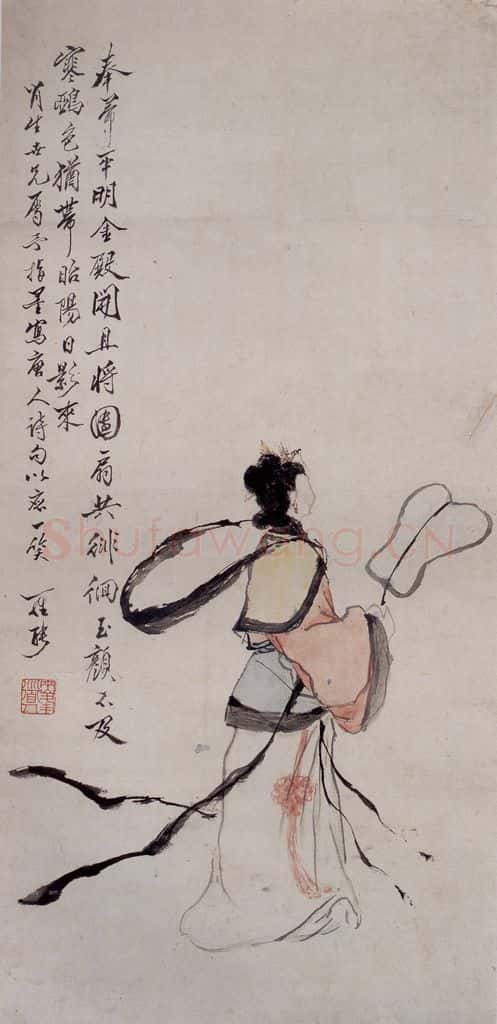 奉帚平明金殿開且將團扇共徘徊玉顏不及
寒鴉色猶帶昭陽日影來
肖生世兄屬予指墨寫唐人詩句以應一 羅聘
Shufawang.CN